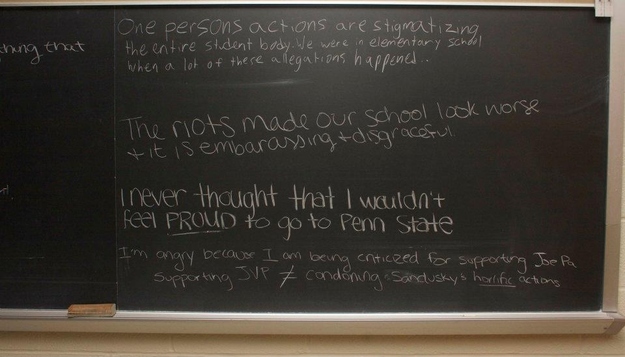 thing that
One persons actions are stigmatizing
the entire student body. We were in elementary school
when a lot of these allegations happened..
The riots made our school look worse
+ it is embarassing + disgraceful
I never thought that I wouldn't
feel PROUD to go to Penn State
I'm angry because I am being criticized for supporting Joe Pa
supporting JVP ≠ condoning Sandusky's horrific actions